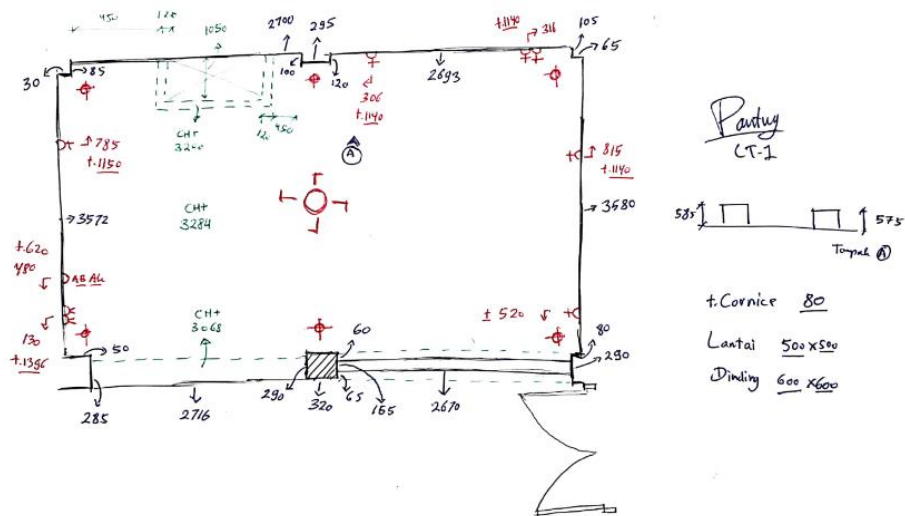 450
120
1050
2700
295
t.1140
316
105
65
30
85
100
120
2693
306
t.1140
CH+
3200
120
450
A
785
t.1150
815
t.1140
3572
CH+
3284
3580
t.620
480
AB Ak
CH+
3068
± 520
130
t.1396
50
60
80
290
285
2716
290
320
65
155
2670
Pantry
LT-1
585
575
Tampak A
t.Cornice 80
Lantai 500x500
Dinding 600x600